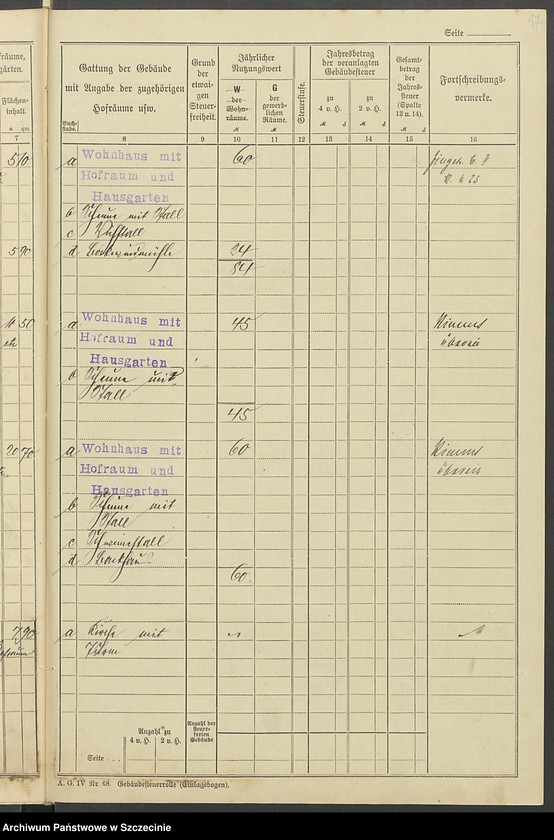 Seite
räume,
gärten.
Flächen-
inhalt.
a qm
7
Gattung der Gebäude
mit Angabe der zugehörigen
Hofräume usw.
Buch-
stabe.
8
Grund
der
etwai-
gen
Steuer-
freiheit.
9
Jährlicher
Nutzungswert
W
der
Wohn-
räume.
M
10
G
der
gewerb-
lichen
Räume.
M
11
Steuerstufe.
12
Jahresbetrag
der veranlagten
Gebäudesteuer
zu
4 v. H.
M
13
zu
2 v. H.
M
14
Gesamt-
betrag
der
Jahres-
steuer
(Spalte
13 u. 14).
M
15
Fortschreibungs-
vermerke.
16
5 10
a Wohnhaus mit 60
Hofraum und
Hausgarten
b Scheune mit Stall
c Viehstall
5 90
d Bockwindmühle 24
84
50
a Wohnhaus mit 45
Hofraum und
Hausgarten
b Scheune mit
Stall
45
70
a Wohnhaus mit 60
Hofraum und
Hausgarten
b Scheune mit
Stall
c Schweinestall
d Backhaus
60
7 90
a Kirche mit
Turm
Seite . . .
Anzahl zu
4 v. H. 2 v. H.
Anzahl der
steuer-
freien
Gebäude
A. G. IV Nr. 68. Gebäudesteuerrolle (Einlagebogen).
Archiwum Państwowe w Szczecinie